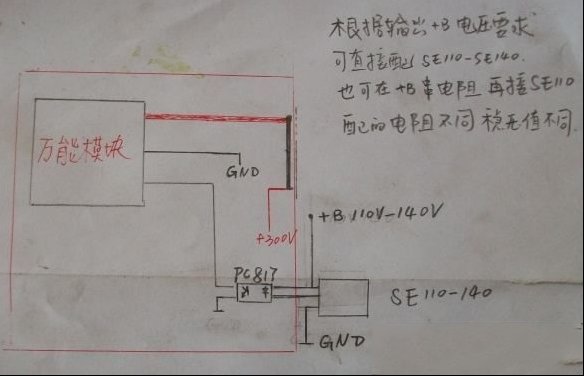 根据输出+B电压要求
可直接配SE110-SE140.
也可在+B串电阻 再接SE110
配的电阻不同 稳压值不同
万能模块
GND
+300V
+B 110V-140V
PC817
SE110-140
GND